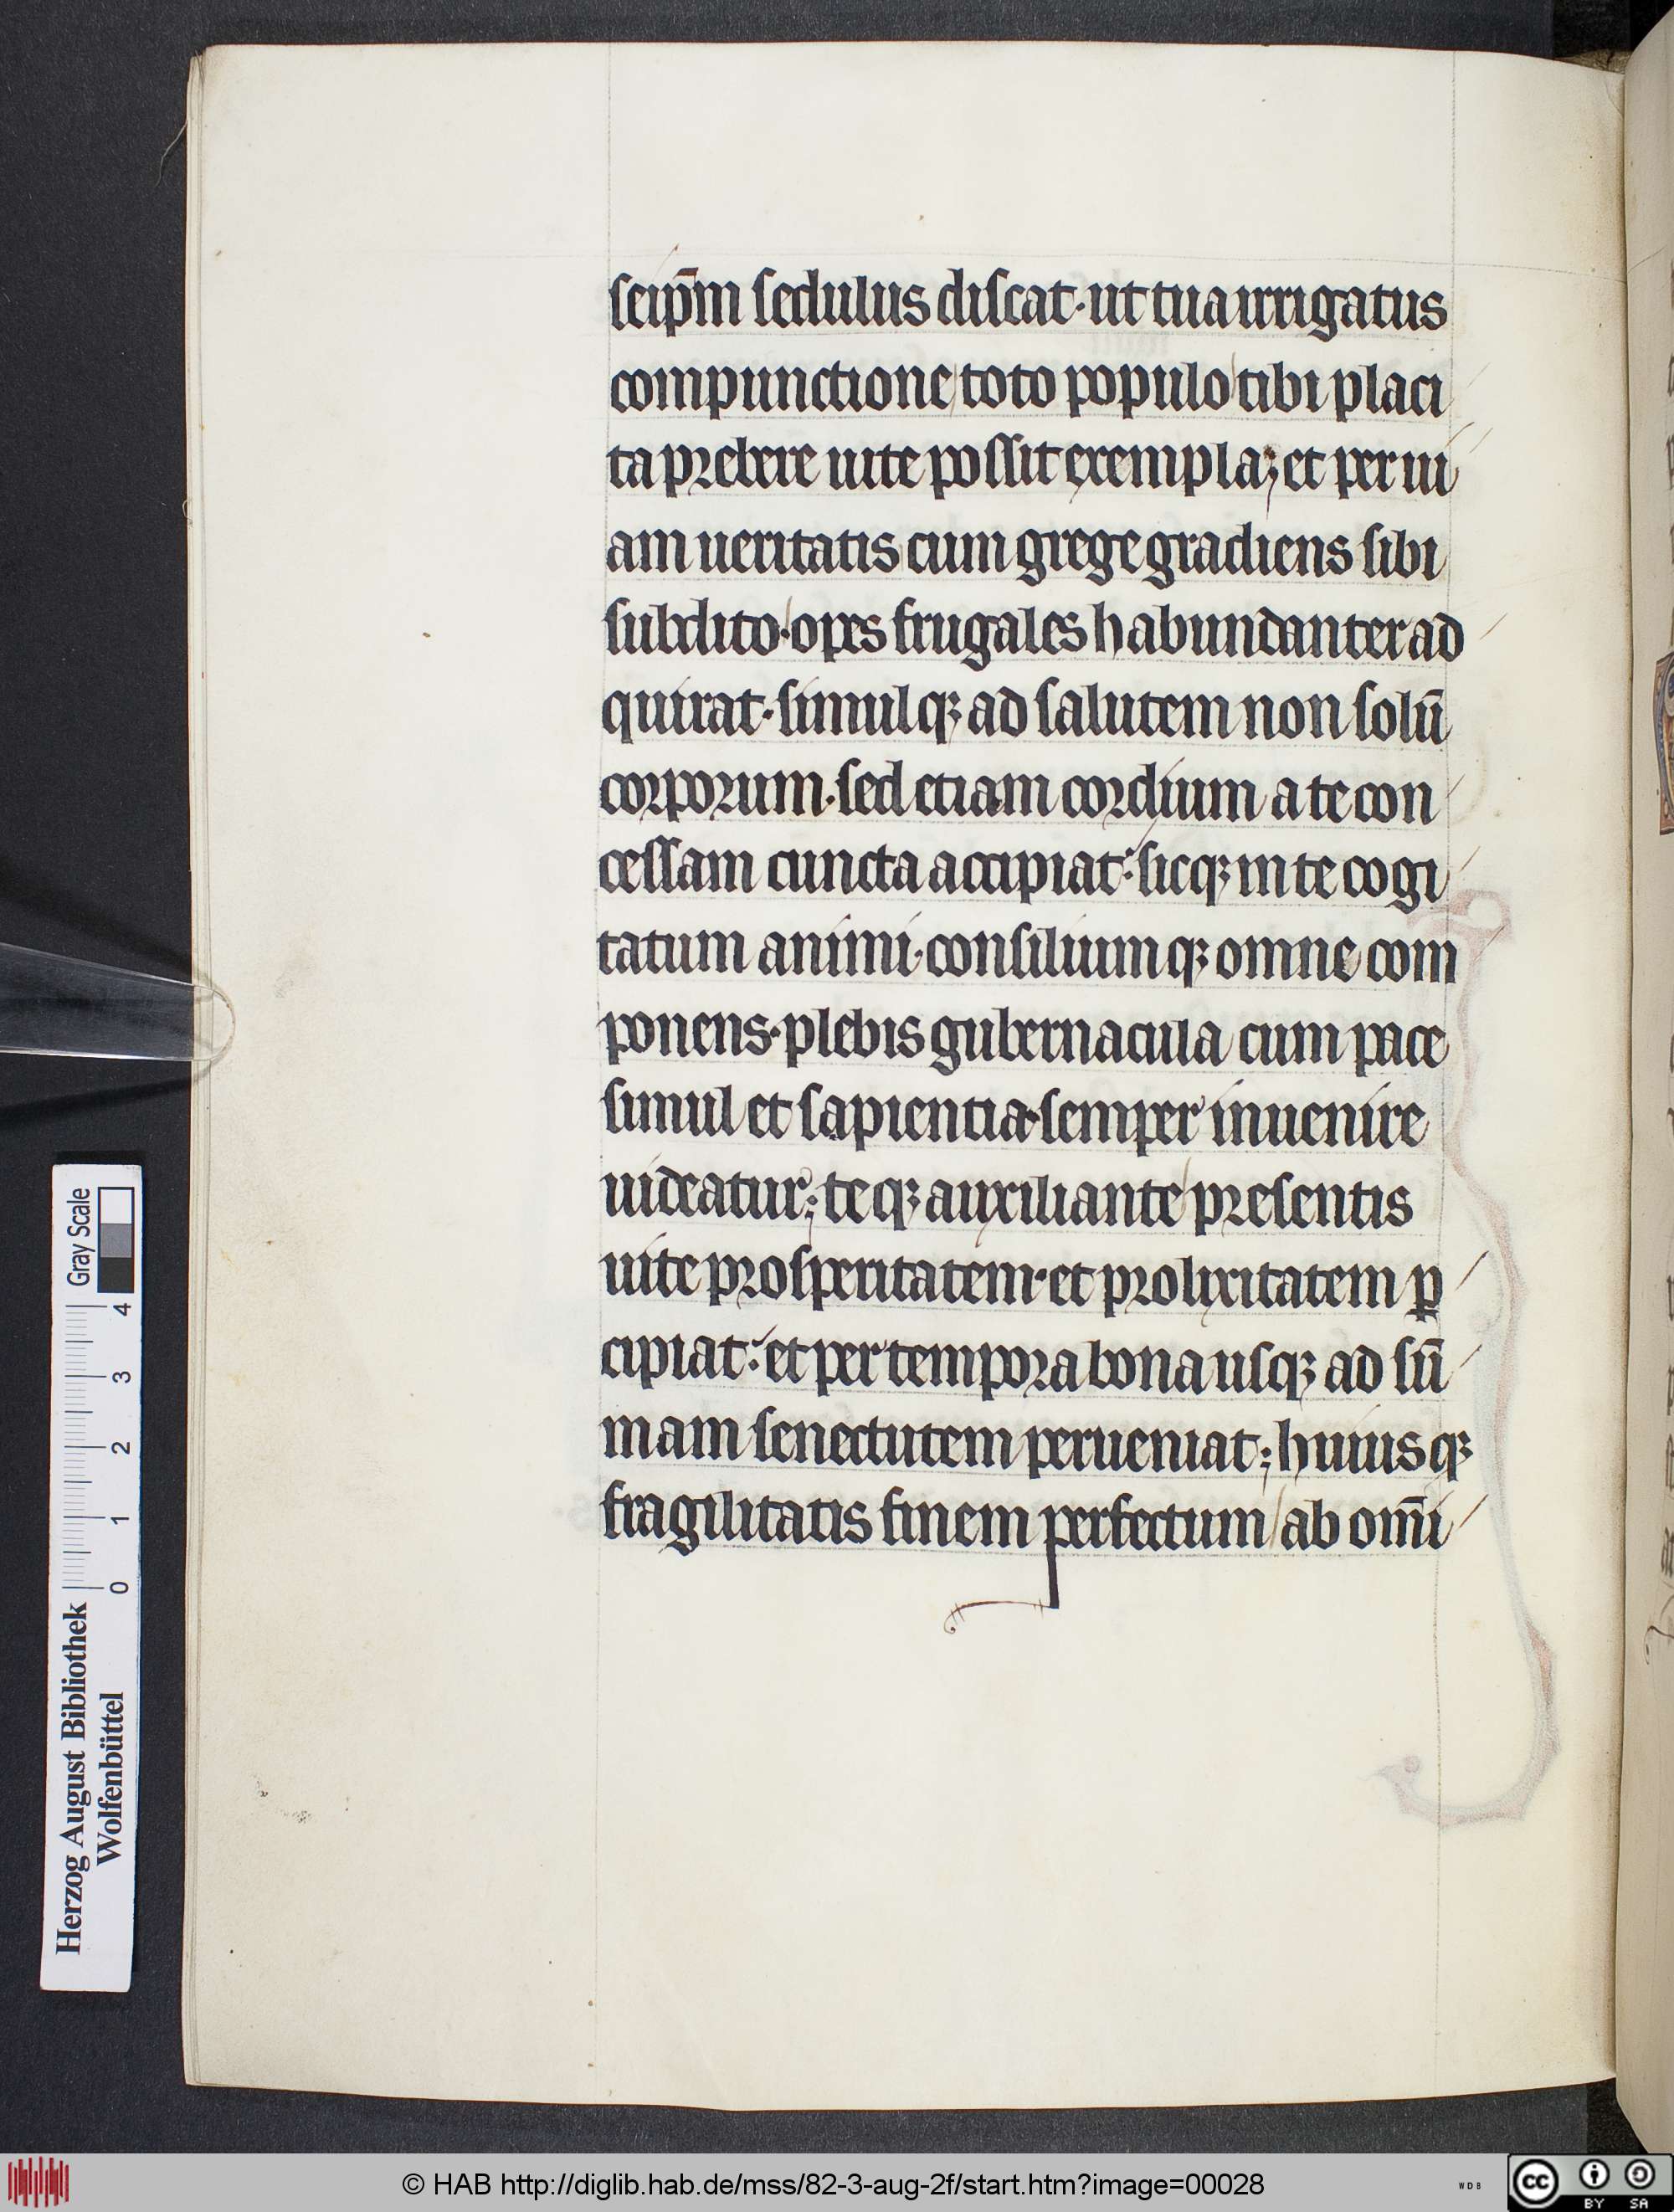 seip̄m sedulus discat· ut tua irrigatus
compunctione toto populo tibi placi
ta prebere uite possit exempla; et per ui
am ueritatis cum grege gradiens sibi
subdito· opes frugales habundanter ad
quirat· simulqꝫ ad salutem non solū
corporum· sed etiam cordium a te con
cessam cuncta accipiat: sicqꝫ in te cogi
tatum animi· consiliumqꝫ omne com
ponens· plebis gubernacula cum pace
simul et sapientia· semper inuenire
uideatur; teqꝫ auxiliante presentis
uite prosperitatem· et prolixitatem ꝑ
cipiat: et per tempora bona usqꝫ ad sū
mam senectutem perueniat; huiusqꝫ
fragilitatis finem perfectum ab om̄i
Herzog August Bibliothek
Wolfenbüttel
0 1 2 3 4
Gray Scale
© HAB http://diglib.hab.de/mss/82-3-aug-2f/start.htm?image=00028
WDB
cc
BY SA